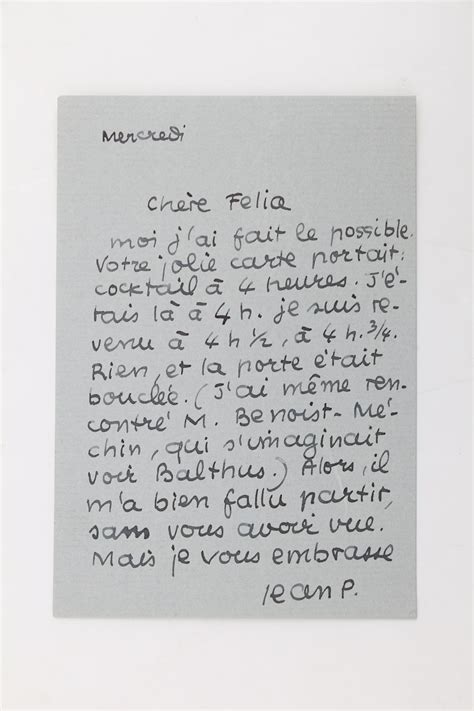 Mercredi
Chère Felia
moi j'ai fait le possible.
Votre jolie carte portait:
cocktail à 4 heures. J'é-
tais là à 4 h. je suis re-
venu à 4 h 1/2, à 4 h. 3/4.
Rien, et la porte était
bouclée. (J'ai même ren-
contré M. Benoist-Mé-
chin, qui s'imaginait
voir Balthus.) Alors, il
m'a bien fallu partir,
sans vous avoir vue.
Mais je vous embrasse
Jean P.